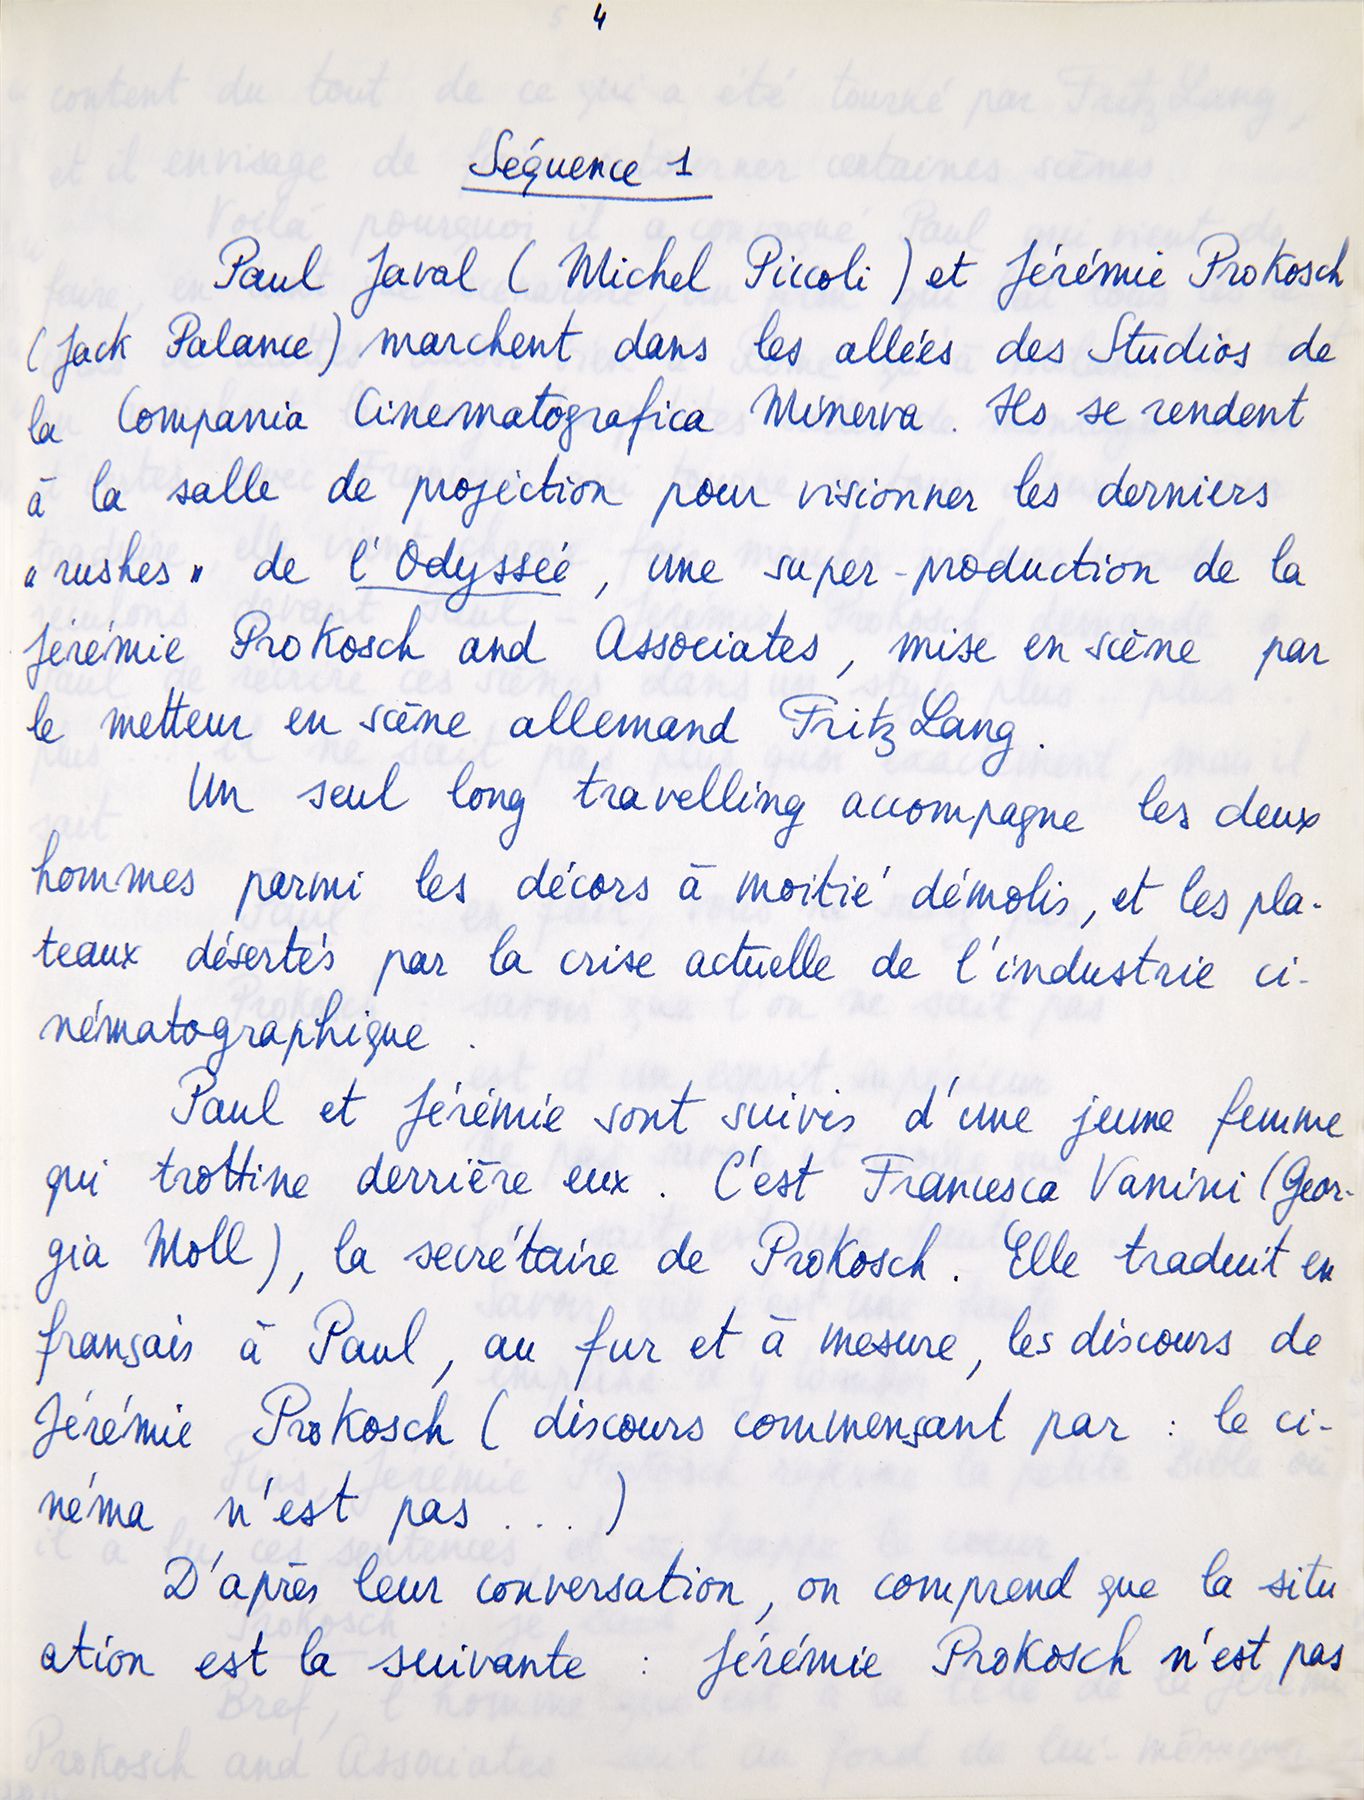 4
Séquence 1
Paul Javal ( Michel Piccoli ) et Jérémie Prokosch
( Jack Palance ) marchent dans les allées des Studios de
la Compania Cinematografica Minerva. Ils se rendent
à la salle de projection pour visionner les derniers
" rushes " de l'Odyssée, une super-production de la
Jérémie Prokosch and Associates, mise en scène par
le metteur en scène allemand Fritz Lang.
Un seul long travelling accompagne les deux
hommes parmi les décors à moitié démolis, et les pla-
teaux désertés par la crise actuelle de l'industrie ci-
nématographique.
Paul et Jérémie sont suivis d'une jeune femme
qui trottine derrière eux. C'est Francesca Vanini ( Geor-
gia Moll ), la secrétaire de Prokosch. Elle traduit en
français à Paul, au fur et à mesure, les discours de
Jérémie Prokosch ( discours commençant par : le ci-
néma n'est pas . . . )
D'après leur conversation, on comprend que la situ
ation est la suivante : Jérémie Prokosch n'est pas